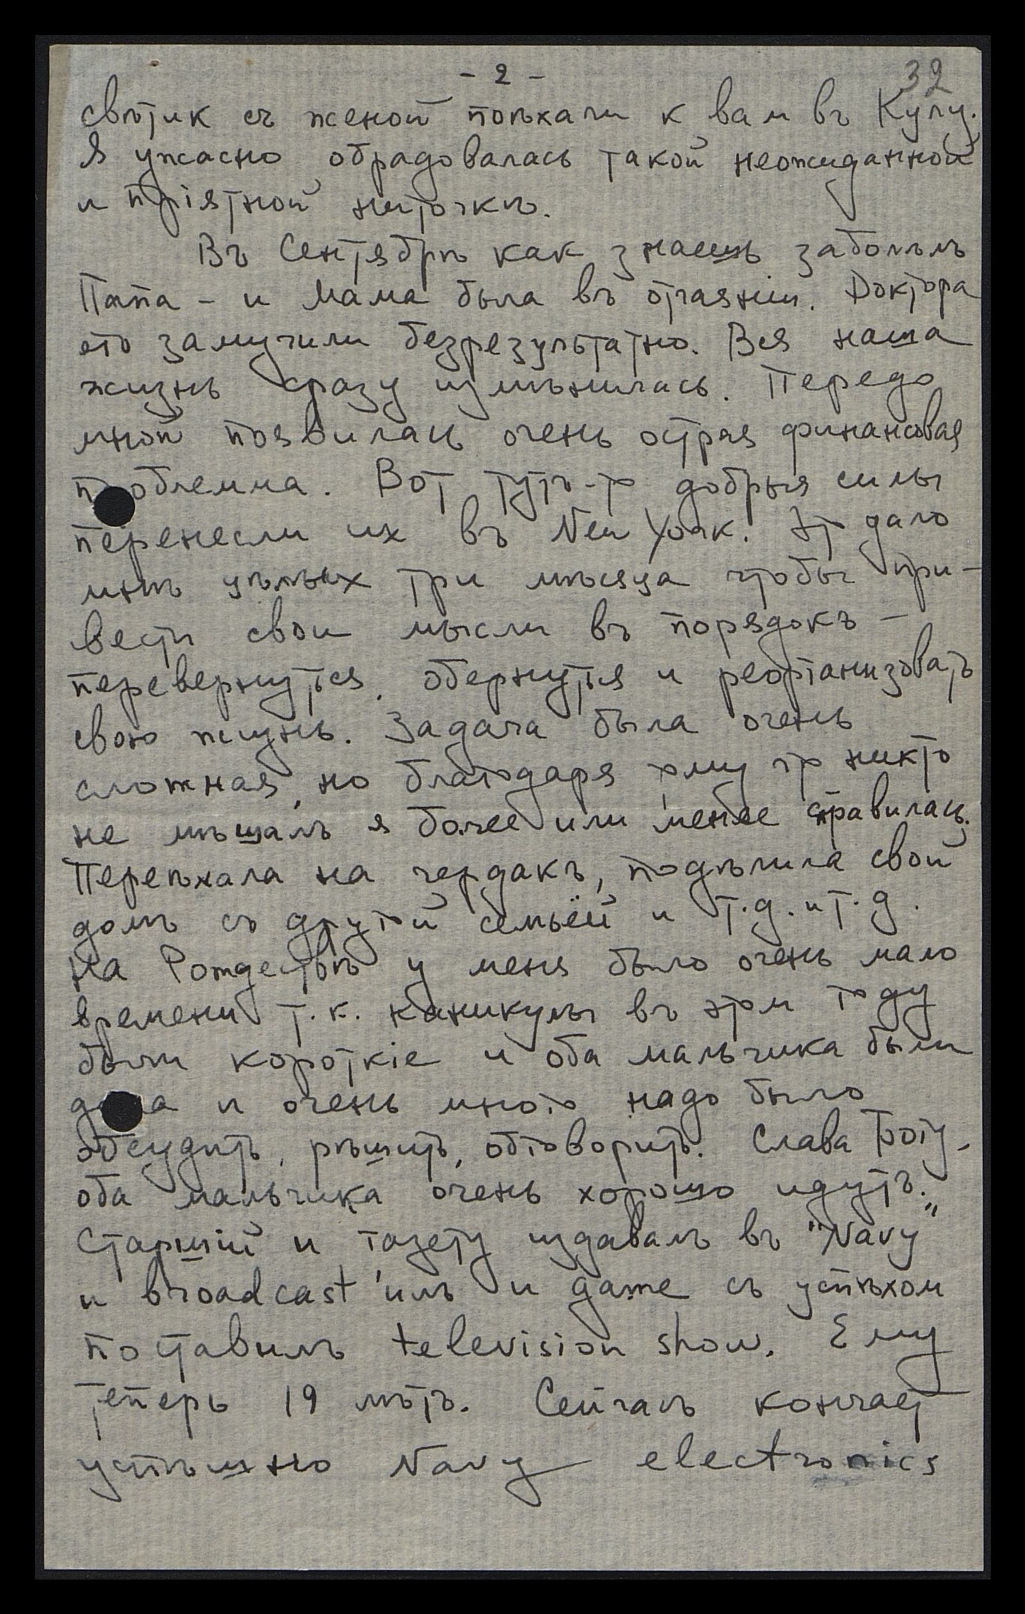 - 2 -
32
свѣтик съ женой поѣхали к вам въ Кулу.
Я ужасно обрадовалась такой неожиданной
и прiятной ниточкѣ.
Въ Сентябрѣ как знаешь заболѣлъ
Папа - и Мама была въ отчаянiи. Доктора
его замучили безрезультатно. Вся наша
жизнь сразу измѣнилась. Передо
мной появилась очень острая финансовая
проблемма. Вот тутъ-то добрыя силы
перенесли их въ New York. Это дало
мнѣ цѣлых три мѣсяца чтобы при-
вести свои мысли въ порядокъ -
перевернуться, обернуться и реорганизовать
свою жизнь. Задача была очень
сложная, но благодаря тому что никто
не мѣшалъ я более или менее справилась.
Переѣхала на чердакъ, подѣлила свой
домъ съ другой семьёй и т.д. и т.д.
На Рождествѣ у меня было очень мало
времени т.к. каникулы въ этом году
были короткiе и оба мальчика были
дома и очень много надо было
обсудить, рѣшить, обговорить. Слава Богу -
оба мальчика очень хорошо идутъ.
Старшiй и газету издавалъ въ "Navy"
и broadcast'илъ и даже съ успѣхом
поставилъ television show. Ему
теперь 19 лѣтъ. Сейчасъ кончает
успѣшно Navy electronics